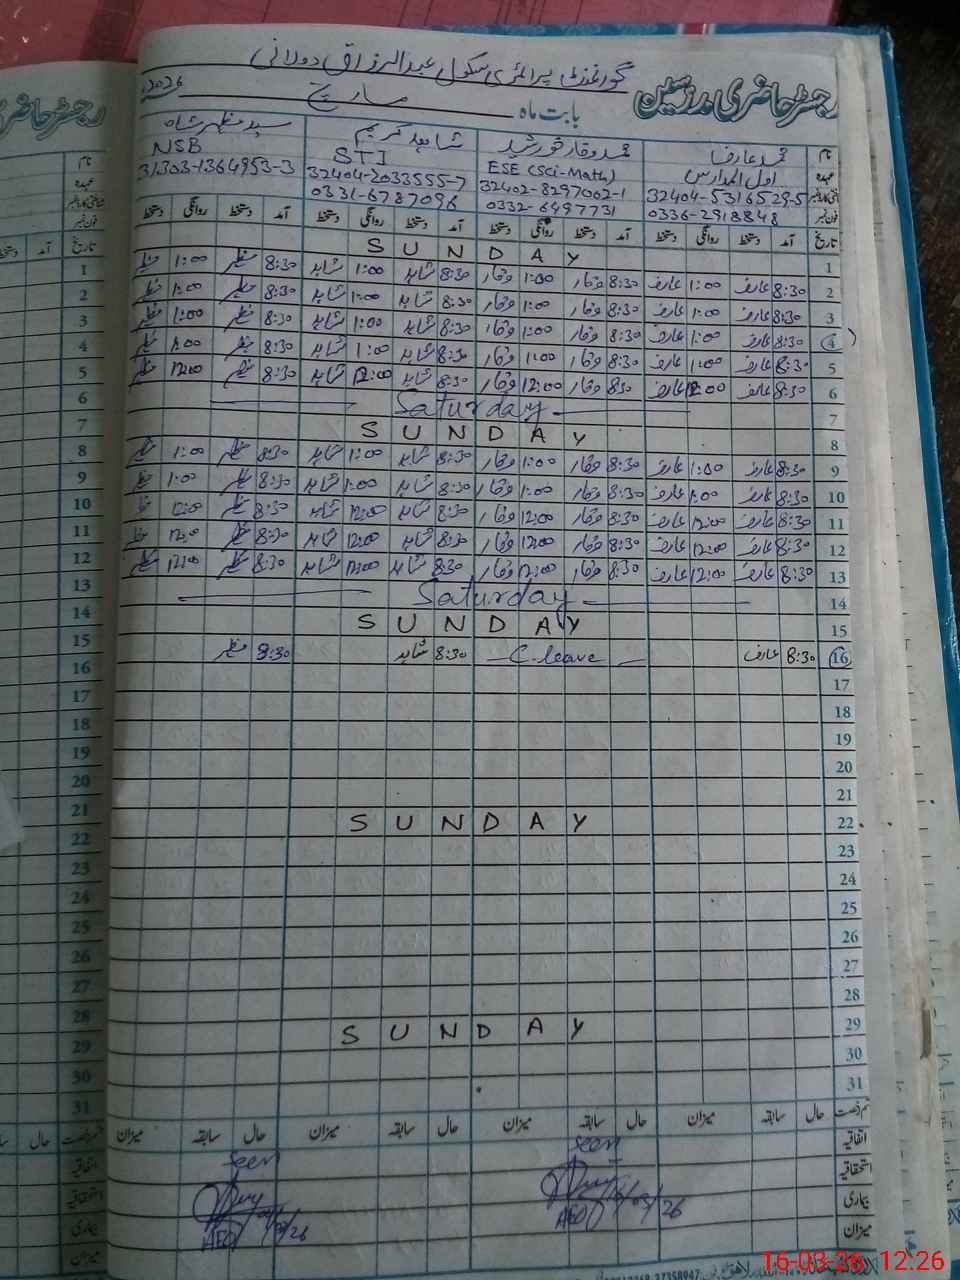 رجسٹر حاضری مدرسین گورنمنٹ پرائمری سکول عبدالرزاق دولانی
بابت ماہ مارچ 2026
نام محمد عارف محمد وقار خورشید شاہد کریم سید مظہر شاہ
عہدہ اول المدارس ESE (Sci-Math) STI NSB
شناختی کارڈ نمبر 32404-5316529-5 32402-8297002-1 32404-2033555-7 31303-1364953-3
فون نمبر 0336-2918848 0332-6497731 0331-6787096
تاریخ آمد دستخط روانگی دستخط آمد دستخط روانگی دستخط آمد دستخط روانگی دستخط آمد دستخط روانگی دستخط
1 SUNDAY
2 8:30 عارف 1:00 عارف 8:30 وقار 1:00 وقار 8:30 شاہد 1:00 شاہد 8:30 مظہر 1:00 مظہر
3 8:30 عارف 1:00 عارف 8:30 وقار 1:00 وقار 8:30 شاہد 1:00 شاہد 8:30 مظہر 1:00 مظہر
4 8:30 عارف 1:00 عارف 8:30 وقار 1:00 وقار 8:30 شاہد 1:00 شاہد 8:30 مظہر 1:00 مظہر
5 8:30 عارف 1:00 عارف 8:30 وقار 1:00 وقار 8:30 شاہد 1:00 شاہد 8:30 مظہر 1:00 مظہر
6 8:30 عارف 12:00 عارف 8:30 وقار 12:00 وقار 8:30 شاہد 12:00 شاہد 8:30 مظہر 12:00 مظہر
7 Saturday
8 SUNDAY
9 8:30 عارف 1:00 عارف 8:30 وقار 1:00 وقار 8:30 شاہد 1:00 شاہد 8:30 مظہر 1:00 مظہر
10 8:30 عارف 1:00 عارف 8:30 وقار 1:00 وقار 8:30 شاہد 1:00 شاہد 8:30 مظہر 1:00 مظہر
11 8:30 عارف 12:00 عارف 8:30 وقار 12:00 وقار 8:30 شاہد 12:00 شاہد 8:30 مظہر 12:00 مظہر
12 8:30 عارف 12:00 عارف 8:30 وقار 12:00 وقار 8:30 شاہد 12:00 شاہد 8:30 مظہر 12:00 مظہر
13 8:30 عارف 12:00 عارف 8:30 وقار 12:00 وقار 8:30 شاہد 12:00 شاہد 8:30 مظہر 12:00 مظہر
14 Saturday
15 SUNDAY
16 8:30 عارف C.leave 8:30 شاہد 8:30 مظہر
17
18
19
20
21
22 SUNDAY
23
24
25
26
27
28
29 SUNDAY
30
31
قسم رخصت حال سابقہ میزان حال سابقہ میزان حال سابقہ میزان حال سابقہ میزان
اتفاقیہ Seen Seen
استحقاقیہ
بیماری 16/03/26
میزان AEO AEO
16-03-26 12:26